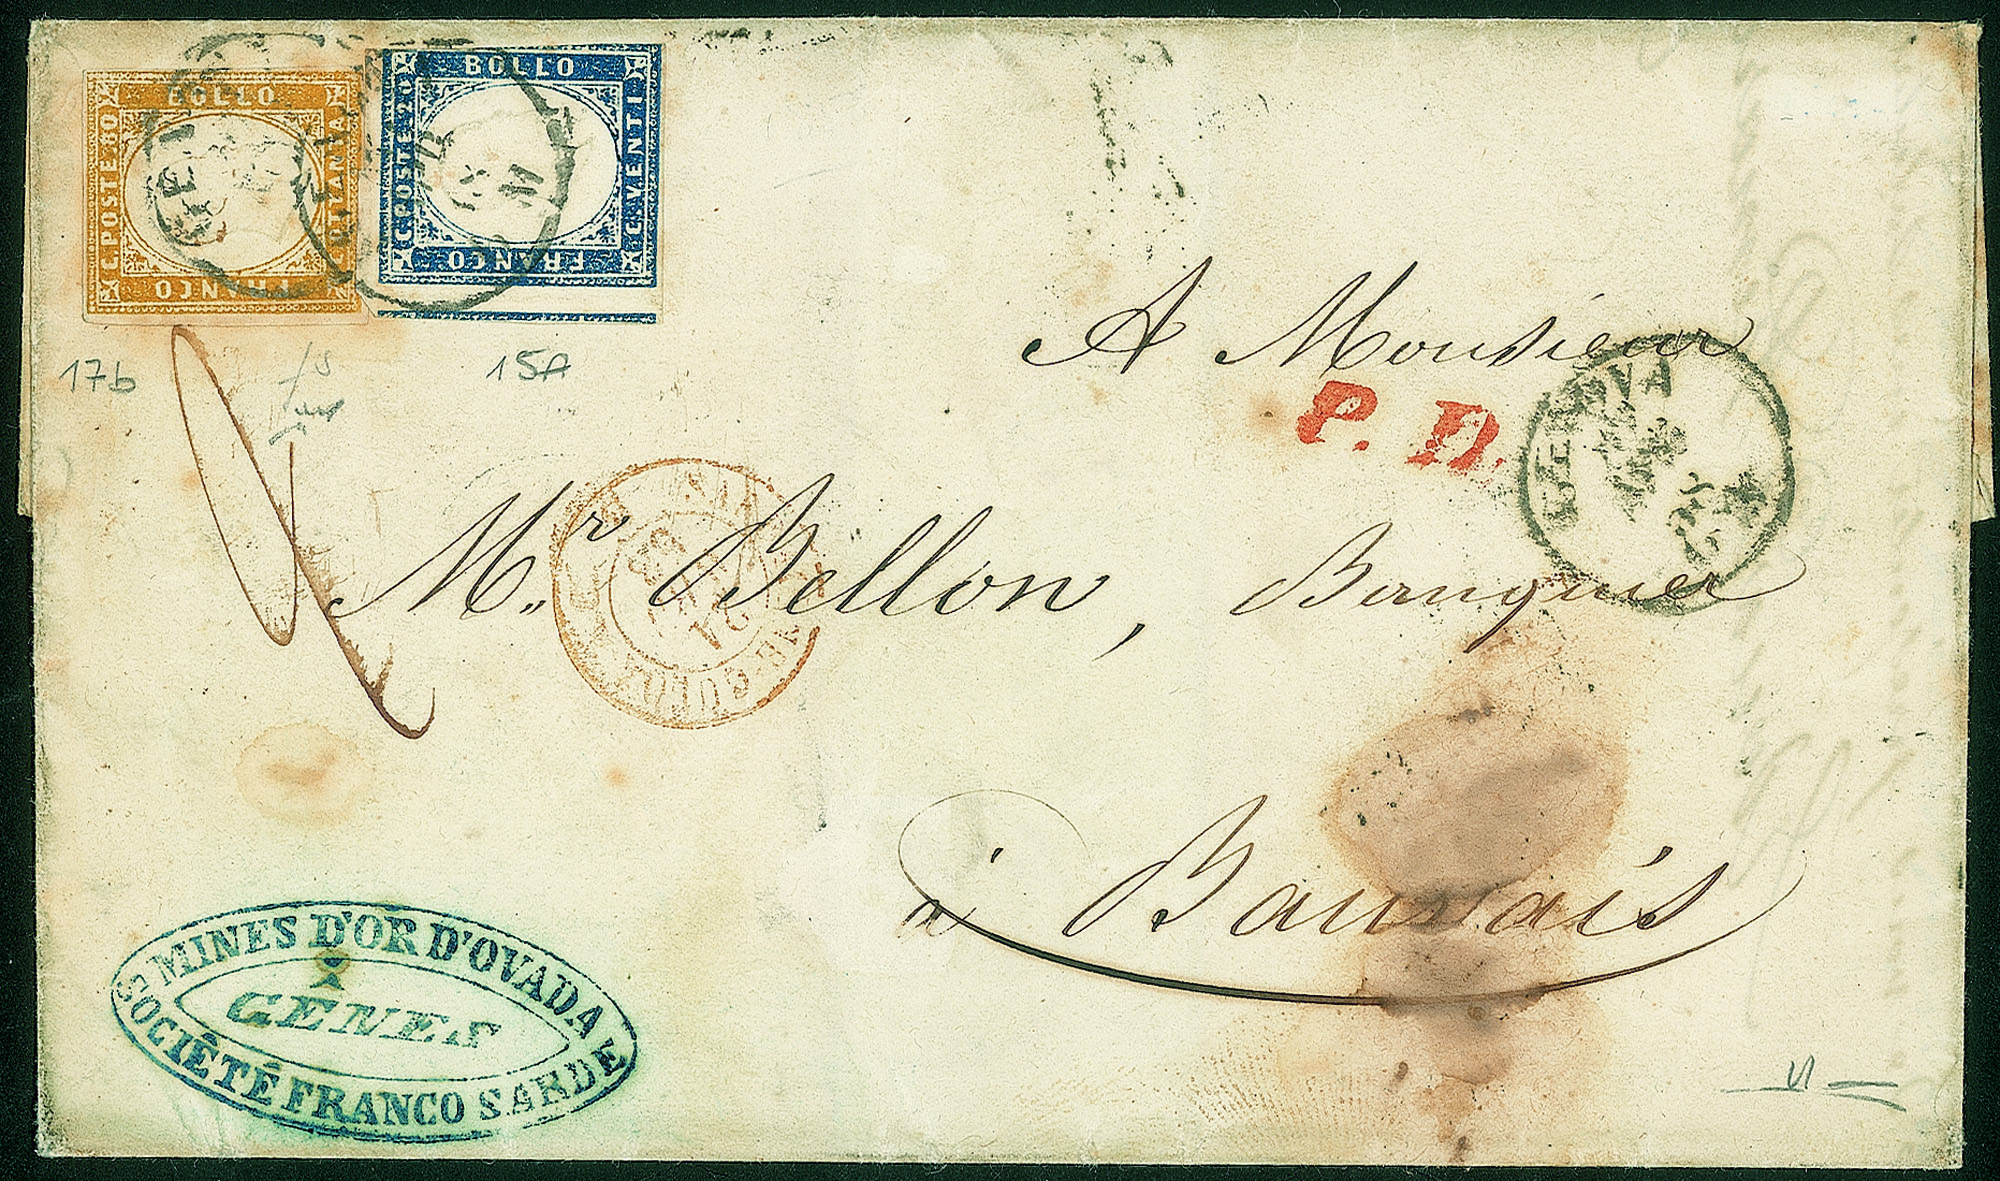 BOLLO
C. POSTE 80
C. OTTANTA
FRANCO
BOLLO
C. POSTE 20
C. VENTI
FRANCO
17b
15A
A Monsieur
P. D.
GENOVA
Mr. Bellon, Banquier
à Bauvais
MINES D'OR D'OVADA
GENES
SOCIÉTÉ FRANCO SARDE